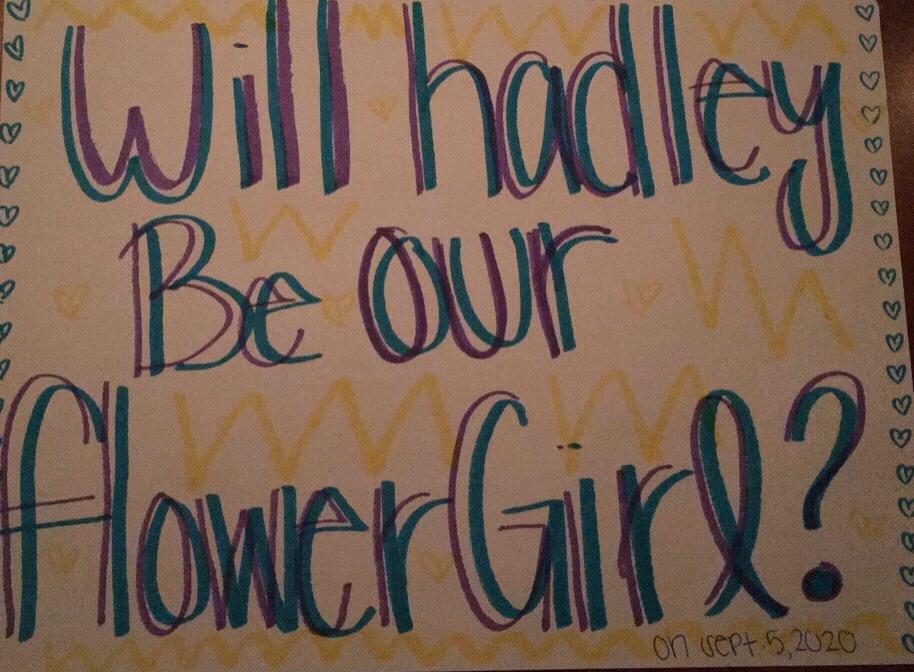 Will hadley
Be our
flowerGirl?
on sept. 5, 2020